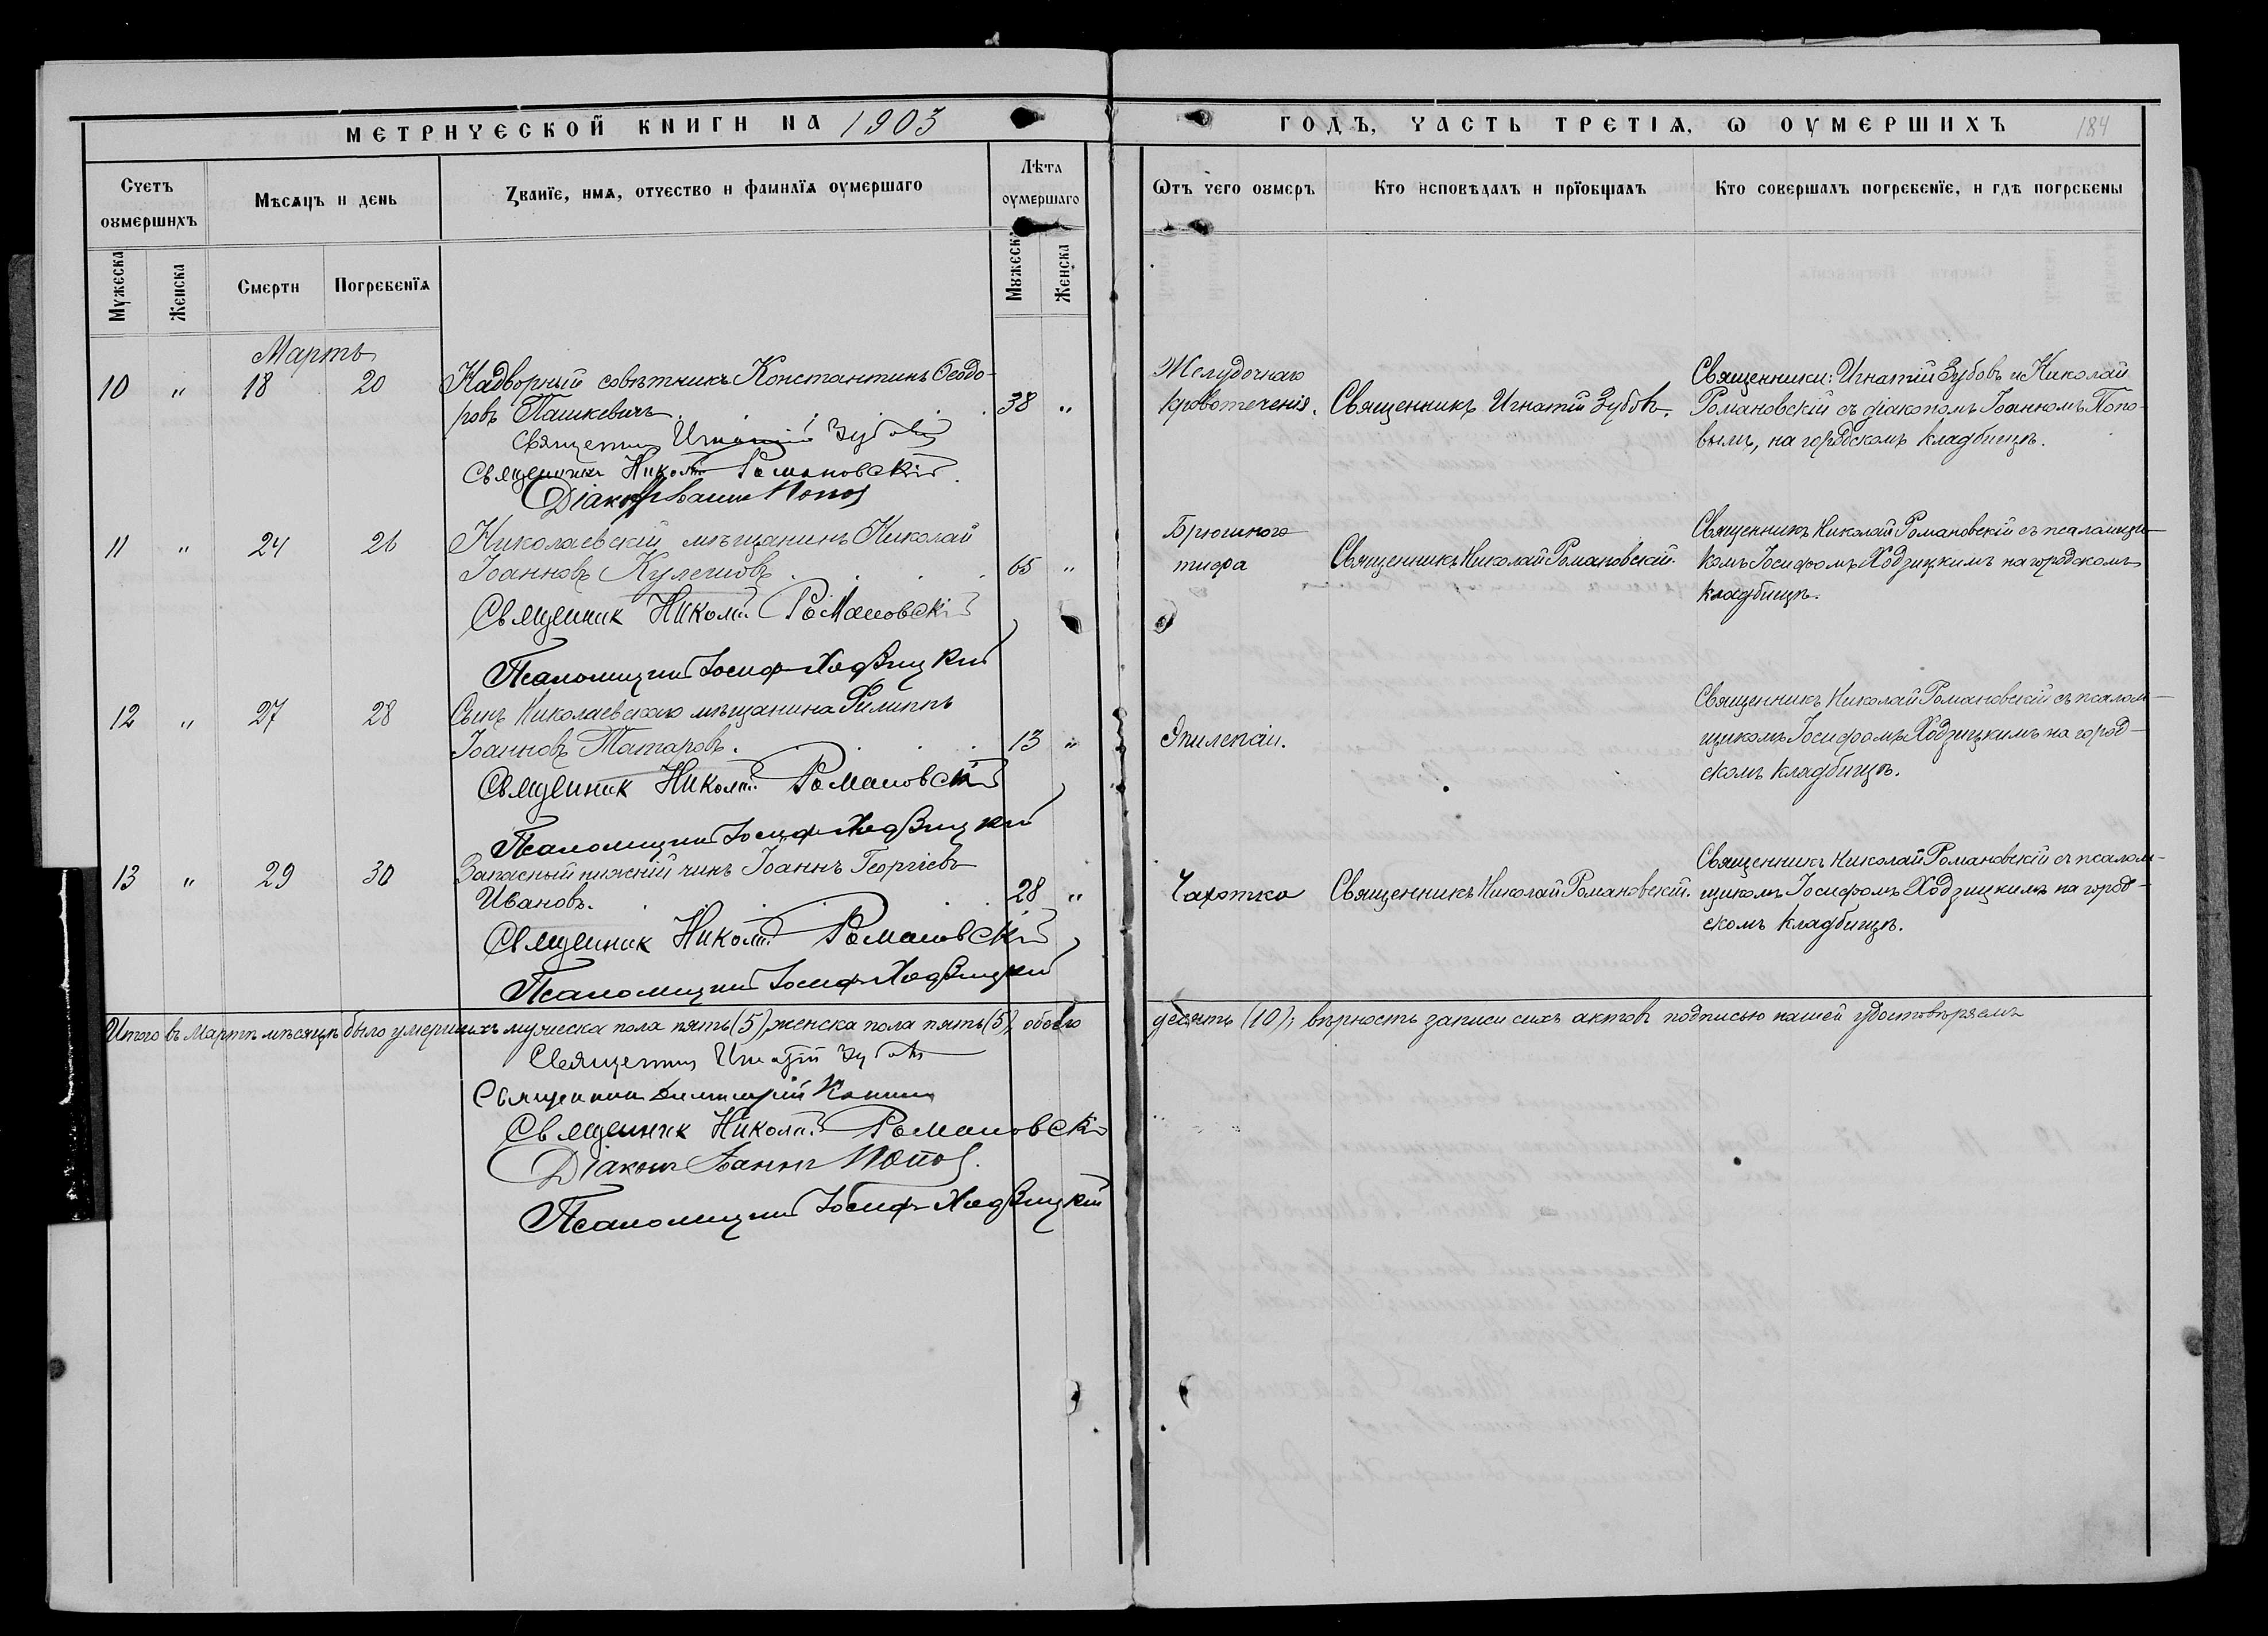 МЕТРИЧЕСКОЙ КНИГИ НА 1903
ГОДЪ, ЧАСТЬ ТРЕТІѦ, Ѡ ОУМЕРШИХЪ 184
Счетъ оумершихъ
Мѣсѧцъ и день
Званїе, имѧ, отчество и фамилїѧ оумершаго
Лѣта оумершаго
Ѿтъ чего оумеръ
Кто исповѣдалъ и прїобщалъ
Кто совершалъ погребенїе, и гдѣ погребены
Мужеска
Женска
Смерти
Погребенїѧ
Мужеска
Женска
Мартъ
10 " 18 20 Надворный совѣтникъ Константинъ Ѳеодо-
ровъ Пашкевичъ. 38 "
Священникъ Игнатій Зубовъ
Священникъ Николай Романовскій
Діаконъ Іоаннъ Поповъ
Желудочнаго
кровотеченія.
Священникъ Игнатій Зубовъ.
Священники: Игнатій Зубовъ и Николай
Романовскій съ діакономъ Іоанномъ Попо-
вымъ, на городскомъ кладбищѣ.
11 " 24 26 Николаевскій мѣщанинъ Николай
Іоанновъ Кулешовъ 65 "
Священник Николай Романовскій
Псаломщикъ Іосифъ Ходзицкій
Брюшного
тифа
Священникъ Николай Романовскій.
Священникъ Николай Романовскій съ псаломщи-
комъ Іосифомъ Ходзицкимъ на городскомъ
кладбищѣ.
12 " 27 28 Сынъ Николаевскаго мѣщанина Филиппъ
Іоанновъ Татаровъ. 13 "
Священник Николай Романовскій
Псаломщикъ Іосифъ Ходзицкій
Эпилепсіи.
Священникъ Николай Романовскій съ псалом-
щикомъ Іосифомъ Ходзицкимъ на город-
скомъ кладбищѣ.
13 " 29 30 Запасный нижній чинъ Іоаннъ Георгіевъ
Ивановъ. 28 "
Священник Николай Романовскій
Псаломщикъ Іосифъ Ходзицкій
Чахотка
Священникъ Николай Романовскій.
Священникъ Николай Романовскій съ псалом-
щикомъ Іосифомъ Ходзицкимъ на город-
скомъ кладбищѣ.
Итого въ Мартѣ мѣсяцѣ было умершихъ мужеска пола пять (5), женска пола пять (5), обоего
десять (10); вѣрность записи сихъ актовъ подписью нашей удостовѣряемъ
Священникъ Игнатій Зубовъ
Священникъ Димитрій
Священник Николай Романовскій
Діаконъ Іоаннъ Поповъ.
Псаломщикъ Іосифъ Ходзицкій